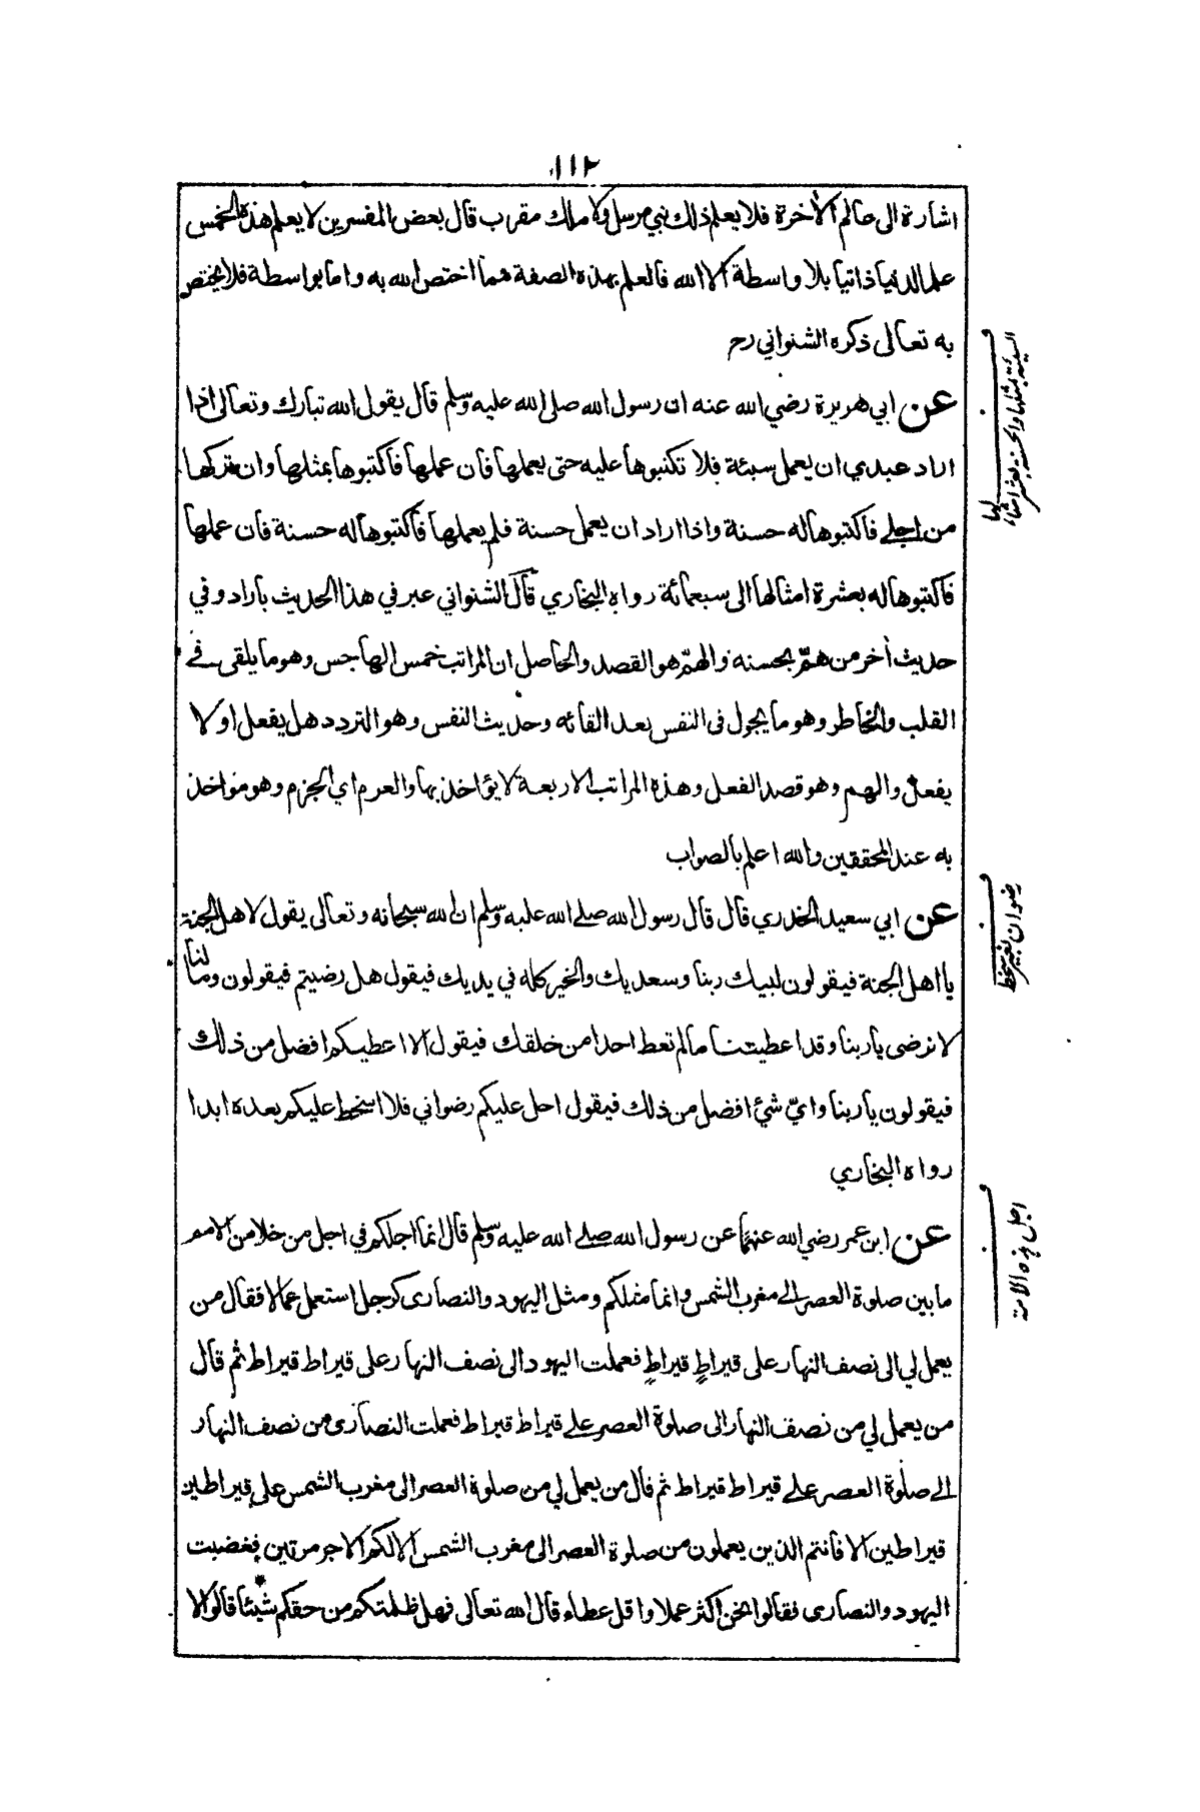 ١١٢
اشارة الى عالم الأخرة فلا يعلم ذلك نبي مرسل ولا ملك مقرب قال بعض المفسرين لا يعلم هذه الخمس
علما لدنيا ذاتيا بلا واسطة الا الله فالعلم بهذه الصفة مما اختص الله به واما بواسطة فلا يختص
به تعالى ذكره الشنواني رح
عن ابي هريرة رضي الله عنه ان رسول الله صلى الله عليه وسلم قال يقول الله تبارك وتعالى اذا
اراد عبدي ان يعمل سيئة فلا تكتبوها عليه حتى يعملها فان عملها فاكتبوها بمثلها وان تركها
من اجلي فاكتبوها له حسنة واذا اراد ان يعمل حسنة فلم يعملها فاكتبوها له حسنة فان عملها
فاكتبوها له بعشرة امثالها الى سبعمائة رواه البخاري قال الشنواني عبر في هذا الحديث باراد وفي
حديث أخر من همّ بحسنة والهمّ هو القصد والحاصل ان المراتب خمس الهاجس وهو ما يلقى في
القلب والخاطر وهو ما يجول في النفس بعد القائه وحديث النفس وهو التردد هل يفعل او لا
يفعل والهم وهو قصد الفعل وهذه المراتب الاربعة لا يؤاخذ بها والعزم اي الجزم وهو مؤاخذ
به عند المحققين والله اعلم بالصواب
عن ابي سعيد الخدري قال قال رسول الله صلى الله عليه وسلم ان الله سبحانه وتعالى يقول لاهل الجنة
يا اهل الجنة فيقولون لبيك ربنا وسعديك والخير كله في يديك فيقول هل رضيتم فيقولون وما لنا
لا نرضى يا ربنا وقد اعطيتنا ما لم تعط احدا من خلقك فيقول الا اعطيكم افضل من ذلك
فيقولون يا ربنا وايّ شئ افضل من ذلك فيقول احل عليكم رضواني فلا اسخط عليكم بعده ابدا
رواه البخاري
عن ابن عمر رضي الله عنهما عن رسول الله صلى الله عليه وسلم قال انما اجلكم في اجل من خلا من الامم
ما بين صلوة العصر الى مغرب الشمس وانما مثلكم ومثل اليهود والنصارى كرجل استعمل عمالا فقال من
يعمل لي الى نصف النهار على قيراطٍ قيراطٍ فعملت اليهود الى نصف النهار على قيراط قيراط ثم قال
من يعمل لي من نصف النهار الى صلوة العصر على قيراط قيراط فعملت النصارى من نصف النهار
الى صلوة العصر على قيراط قيراط ثم قال من يعمل لي من صلوة العصر الى مغرب الشمس على قيراطين
قيراطين الا فانتم الذين يعملون من صلوة العصر الى مغرب الشمس الا لكم الاجر مرتين فغضبت
اليهود والنصارى فقالوا نحن اكثر عملا واقل عطاء قال الله تعالى فهل ظلمتكم من حقكم شيئا قالوا لا
السيئة بمثلها والحسنة بعشر امثا
لها
رضوان بغير سخط
اجل هذه الامة